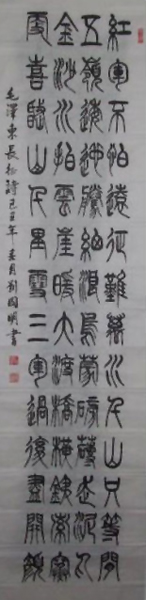 紅軍不怕遠征難萬水千山只等閒
五嶺逶迤騰細浪烏蒙磅礴走泥丸
金沙水拍雲崖暖大渡橋橫鐵索寒
更喜岷山千里雪三軍過後盡開顏
毛澤東長征詩己丑年月劉國明書